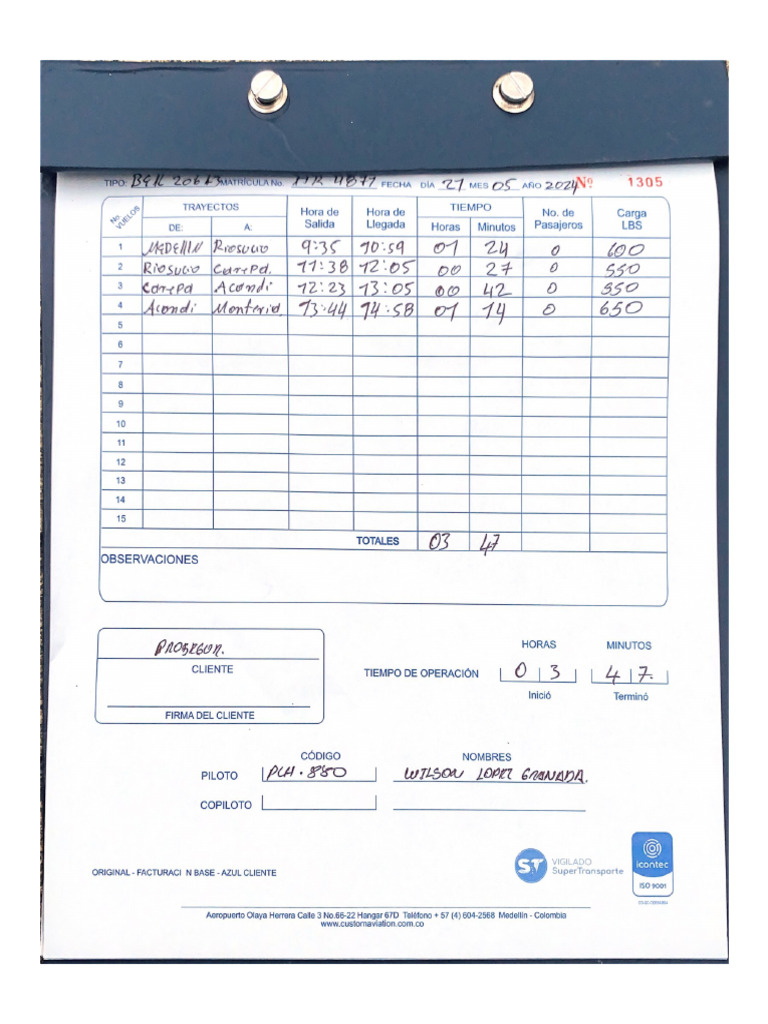 TIPO: BELL 206L3 MATRÍCULA No. HK 4877 FECHA DÍA 27 MES 05 AÑO 2024 Nº 1305
No. VUELOS TRAYECTOS Hora de Salida Hora de Llegada TIEMPO No. de Pasajeros Carga LBS
DE: A: Horas Minutos
1 MEDELLIN RIOSUCIO 9:35 10:59 01 24 0 600
2 RIOSUCIO Carepa. 11:38 12:05 00 27 0 550
3 Carepa Acandi 12:23 13:05 00 42 0 550
4 Acandi Monteria 13:44 14:58 01 14 0 650
5
6
7
8
9
10
11
12
13
14
15
TOTALES 03 47
OBSERVACIONES
PROSEGUR.
CLIENTE
FIRMA DEL CLIENTE
HORAS MINUTOS
TIEMPO DE OPERACIÓN 0 3 4 7.
Inició Terminó
CÓDIGO NOMBRES
PILOTO PCH.880 WILSON LOPEZ GRANADA.
COPILOTO
ORIGINAL - FACTURACI N BASE - AZUL CLIENTE
ST VIGILADO SuperTransporte
icontec
ISO 9001
Aeropuerto Olaya Herrera Calle 3 No.66-22 Hangar 67D Teléfono + 57 (4) 604-2568 Medellín - Colombia
www.customaviation.com.co